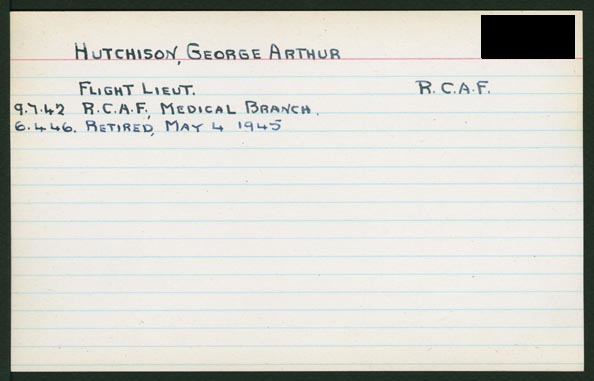 HUTCHISON, GEORGE ARTHUR
FLIGHT LIEUT. R.C.A.F.
9.7.42 R.C.A.F., MEDICAL BRANCH.
6.4.46. RETIRED, MAY 4 1945